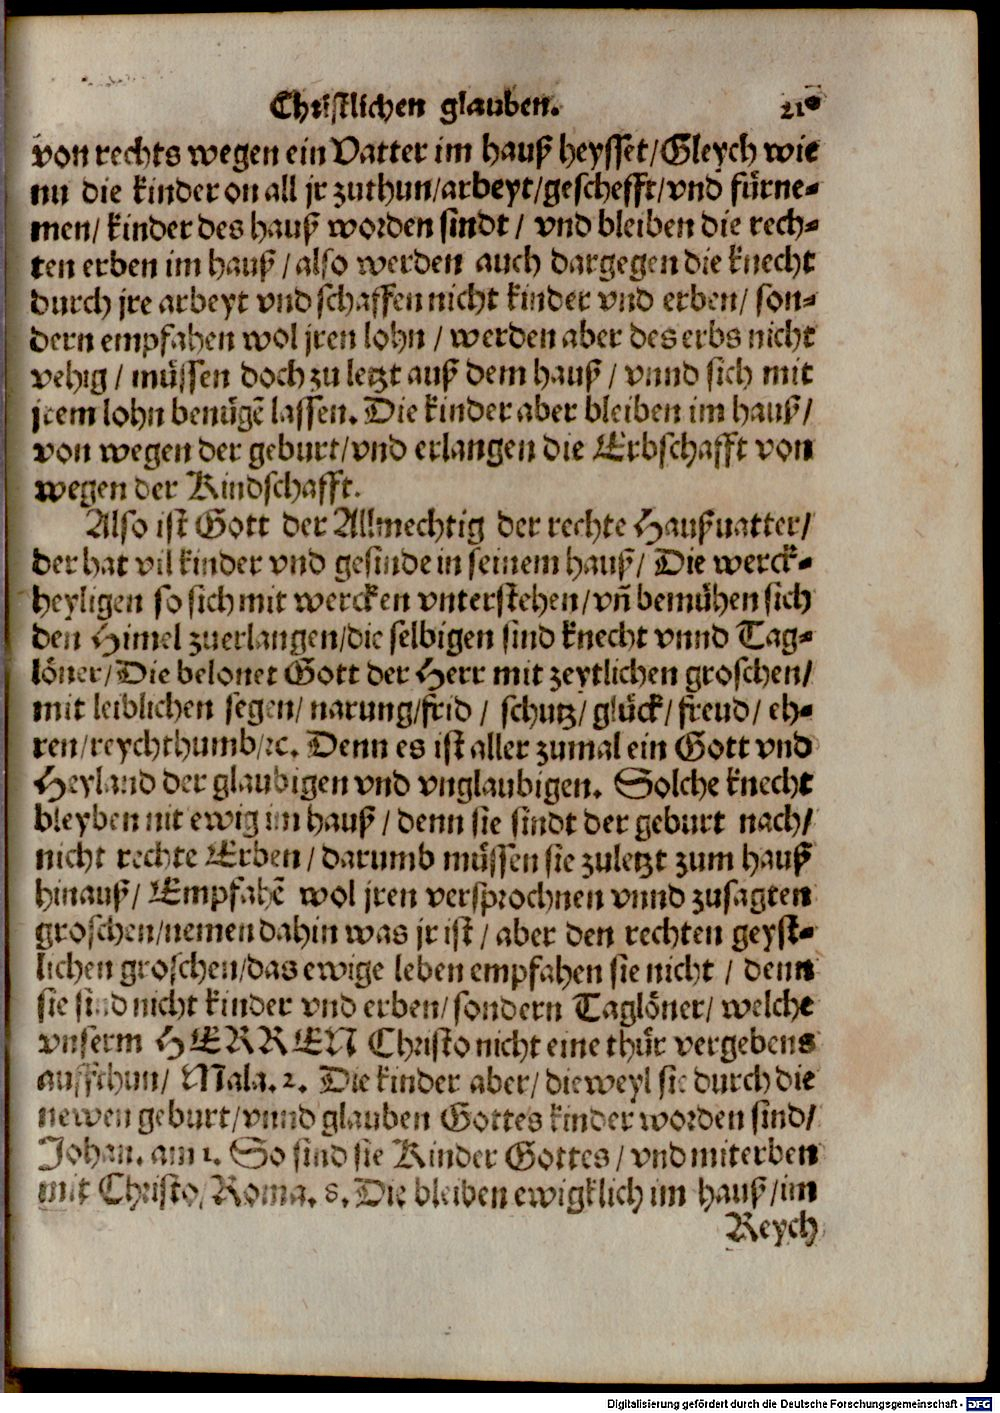 Christlichen glauben. 21
von rechts wegen ein Vatter im hauß heysset/Gleych wie
nu die kinder on all jr zuthun/arbeyt/geschefft/vnd fürne-
men/ kinder des hauß worden sindt / vnd bleiben die rech-
ten erben im hauß / also werden auch dargegen die knecht
durch jre arbeyt vnd schaffen nicht kinder vnd erben/ son-
dern empfahen wol jren lohn / werden aber des erbs nicht
vehig / müssen doch zu letzt auß dem hauß / vnnd sich mit
jrem lohn benügẽ lassen. Die kinder aber bleiben im hauß/
von wegen der geburt/vnd erlangen die Erbschafft von
wegen der Kindschafft.
Also ist Gott der Allmechtig der rechte Haußuatter/
der hat vil kinder vnd gesinde in seinem hauß/ Die werck-
heyligen so sich mit wercken vnterstehen/vñ bemühen sich
den Himel zuerlangen/die selbigen sind knecht vnnd Tag-
löner/Die belonet Gott der Herr mit zeytlichen groschen/
mit leiblichen segen/ narung/frid / schutz/ glück/ freud/ eh-
ren/reychthumb/ꝛc. Denn es ist aller zumal ein Gott vnd
Heyland der glaubigen vnd vnglaubigen. Solche knecht
bleyben nit ewig im hauß / denn sie sindt der geburt nach/
nicht rechte Erben / darumb müssen sie zuletzt zum hauß
hinauß/ Empfahẽ wol jren versprochnen vnnd zusagten
groschen/nemen dahin was jr ist / aber den rechten geyst-
lichen groschen/das ewige leben empfahen sie nicht / denn
sie sind nicht kinder vnd erben/ sondern Taglöner/ welche
vnserm HERREN Christo nicht eine thür vergebens
auffthun/ Mala. 2. Die kinder aber/ dieweyl sie durch die
newen geburt/vnnd glauben Gottes kinder worden sind/
Johan. am 1. So sind sie Kinder Gottes / vnd miterben
mit Christo, Roma. 8. Die bleiben ewigklich im hauß /im
Reych
Digitalisierung gefördert durch die Deutsche Forschungsgemeinschaft - DFG